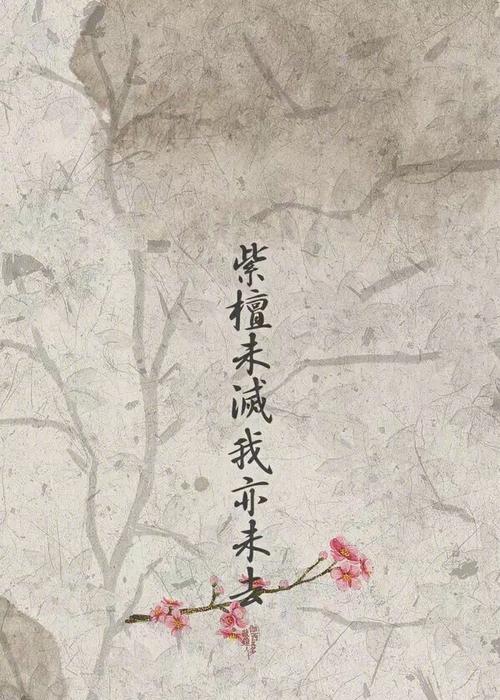 紫檀未滅我亦未去